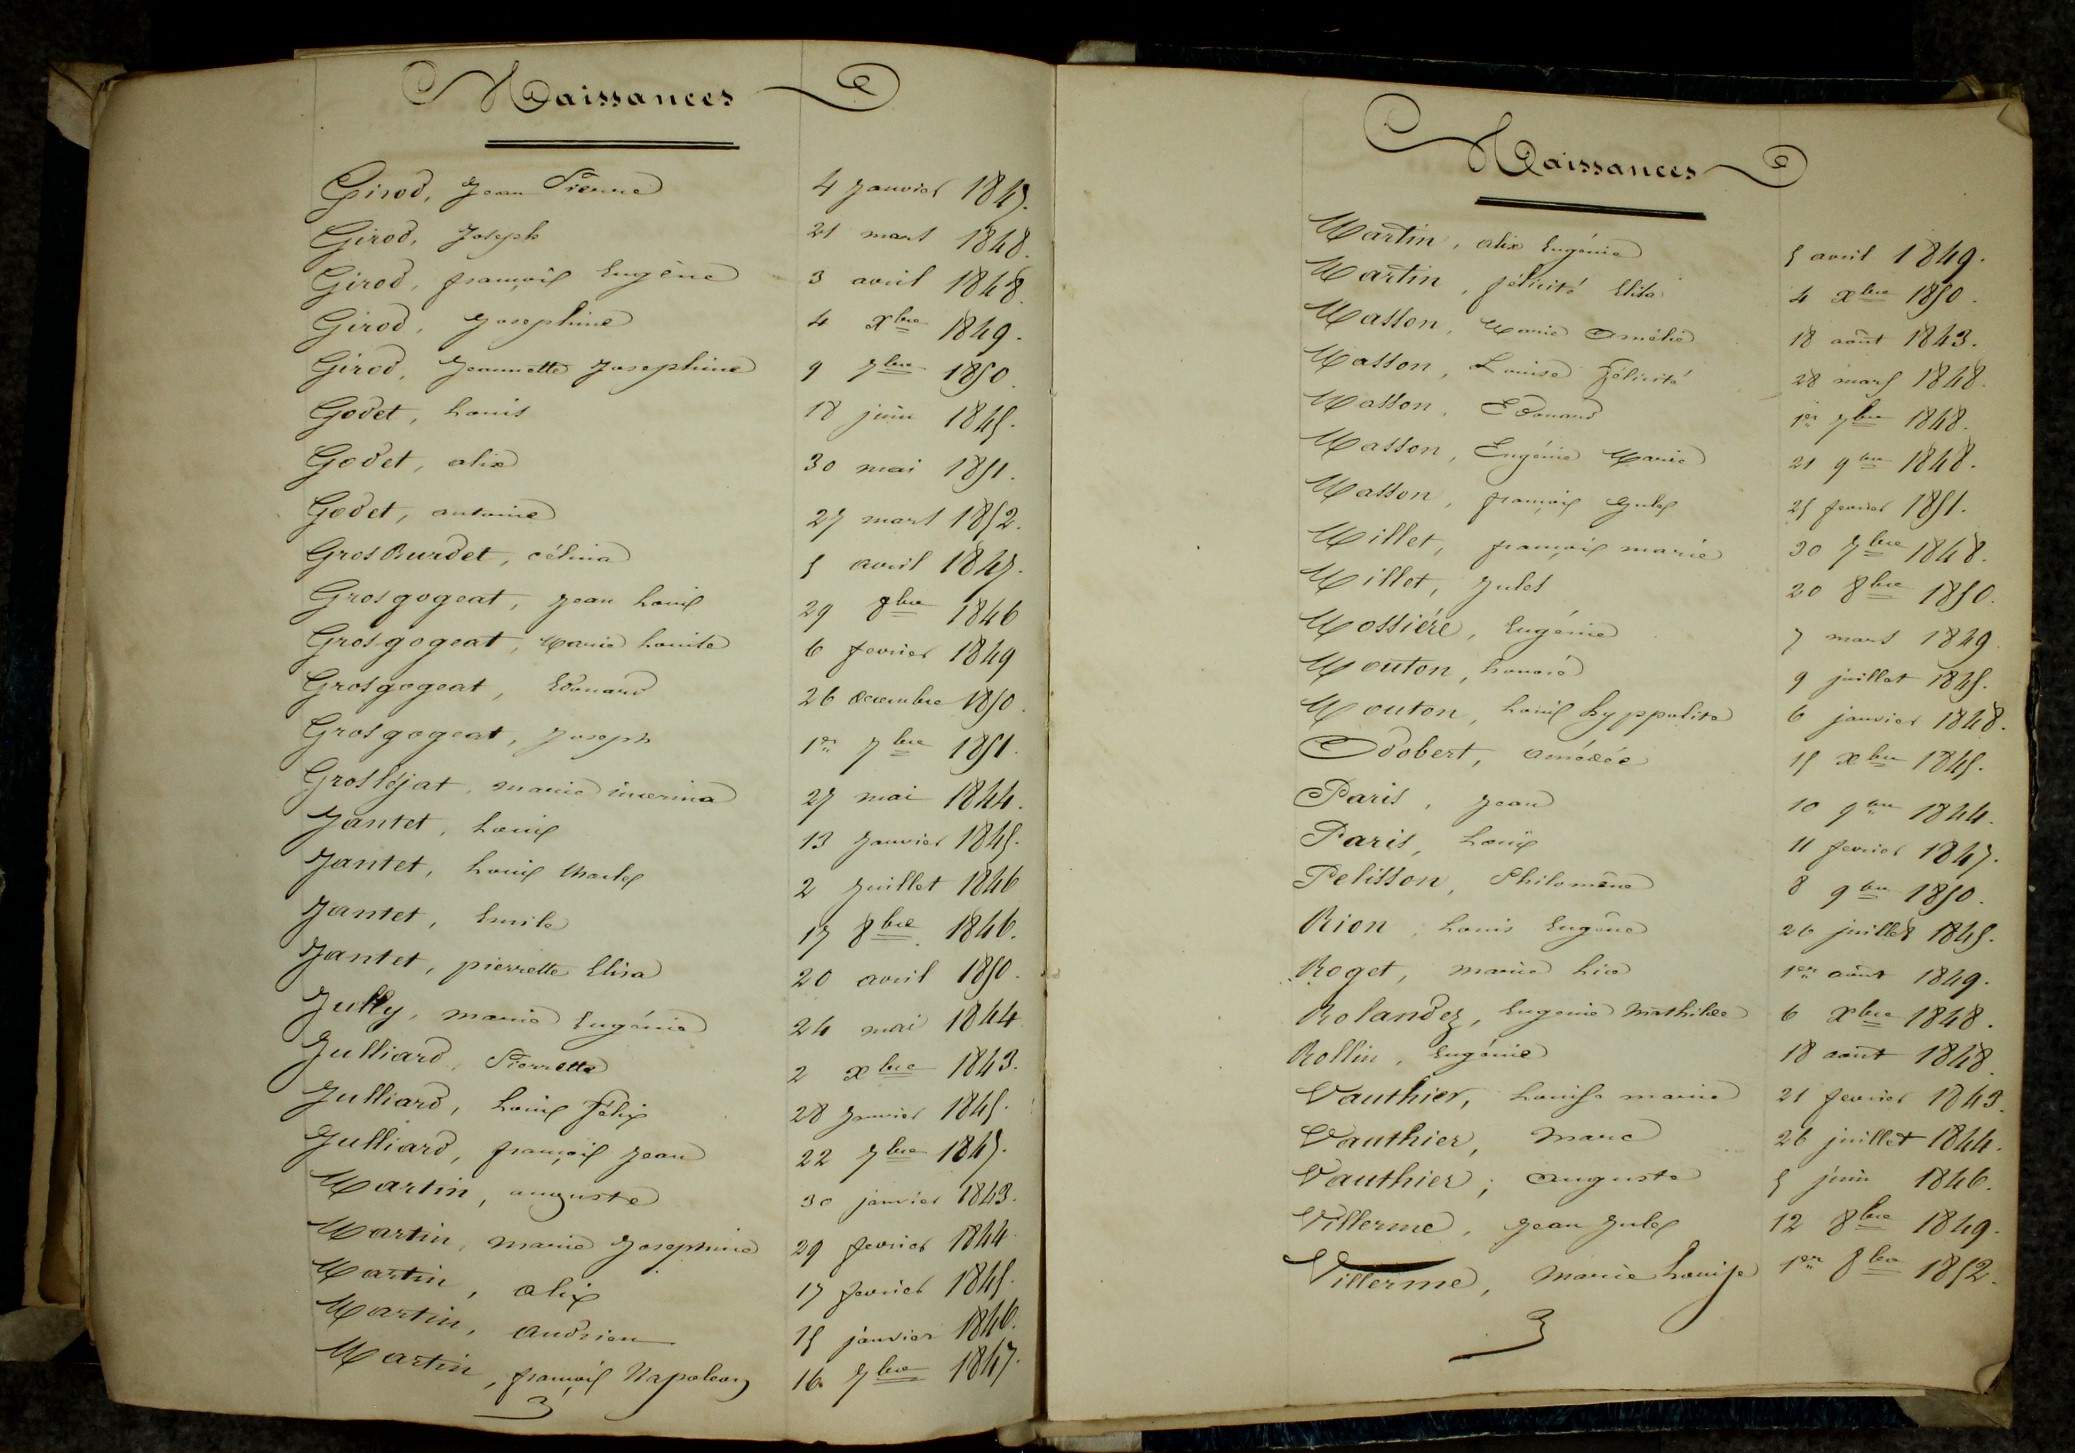 Naissances
Girod, Jean Pierre 4 Janvier 1847.
Girod, Joseph 21 mars 1848.
Girod, françois Eugène 3 avril 1848.
Girod, Josephine 4 Xbre 1849.
Girod, Jeannette Josephine 9 7bre 1850.
Godet, Louis 18 juin 1845.
Godet, alix 30 mai 1851.
Godet, antoine 27 mars 1852.
GrosBurdet, célina 5 avril 1847.
Grosgogeat, Jean Louis 29 8bre 1846
Grosgogeat, Marie Louise 6 fevrier 1849
Grosgogeat, Edouard 26 decembre 1850.
Grosgogeat, Joseph 1er 7bre 1851.
Groslejat, marie 27 mai 1844.
Jantet, Louis 13 Janvier 1845.
Jantet, Louis Charles 2 Juillet 1846
Jantet, Emile 17 8bre 1846.
Jantet, pierrette Elisa 20 avril 1850.
Jully, marie Eugénie 24 mai 1844
Julliard, Pierrette 2 xbre 1843.
Julliard, Louis Félix 28 Janvier 1845.
Julliard, françois Jean 22 7bre 1847.
Martin, auguste 30 janvier 1843.
Martin, marie Josephine 29 fevrier 1844
Martin, alix 17 fevrier 1845.
Martin, andrien 15 janvier 1846.
Martin, françois Napoleon 16 7bre 1847.
Naissances
Martin, alix Eugénie 5 avril 1849.
Martin, félicité Elisa 4 xbre 1850.
Masson, Marie Amélie 18 août 1843.
Masson, Louise Félicité 28 mars 1848.
Masson, Edouard 1er 7bre 1848.
Masson, Eugénie Marie 21 9bre 1848.
Masson, françois Jules 25 fevrier 1851.
Millet, françois marie 30 7bre 1848.
Millet, Jules 20 8bre 1850.
Mossière, Eugénie 7 mars 1849
Mouton, honoré 9 juillet 1845.
Mouton, Louis hyppolite 6 janvier 1848.
Odobert, amédée 15 xbre 1845.
Paris, Jean 10 9bre 1844.
Paris, Louis 11 fevrier 1847.
Pelisson, Philomène 8 9bre 1850.
Rion, Louis Eugène 26 juillet 1845.
Roget, marie Lia 1er août 1849.
Rolandez, Eugenie Mathilde 6 xbre 1848.
Rollin, Eugénie 18 août 1848.
Vauthier, Louise marie 21 fevrier 1843.
Vauthier, Marc 26 juillet 1844.
Vauthier, Auguste 5 juin 1846.
Villerme, Jean Jules 12 8bre 1849.
Villerme, Marie Louise 1er 8bre 1852.